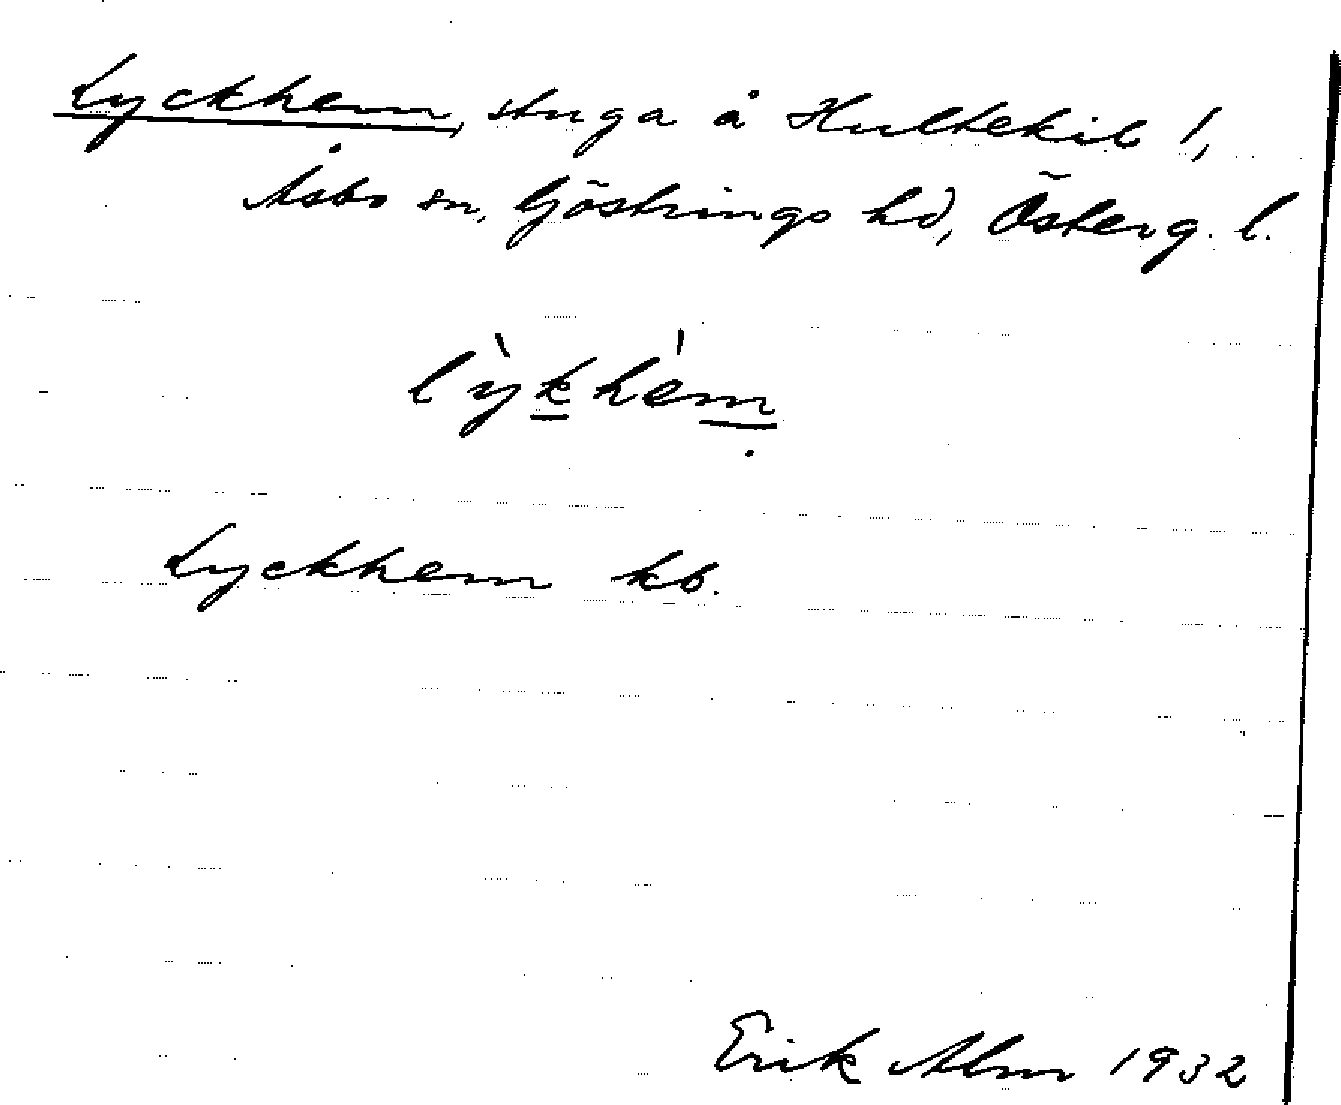 Lyckhem, stuga å Hultekil 1,
Åsbo sn, Göstrings hd, Österg. l.
lỳkhém
Lyckhem kb.
Erik Alm 1932